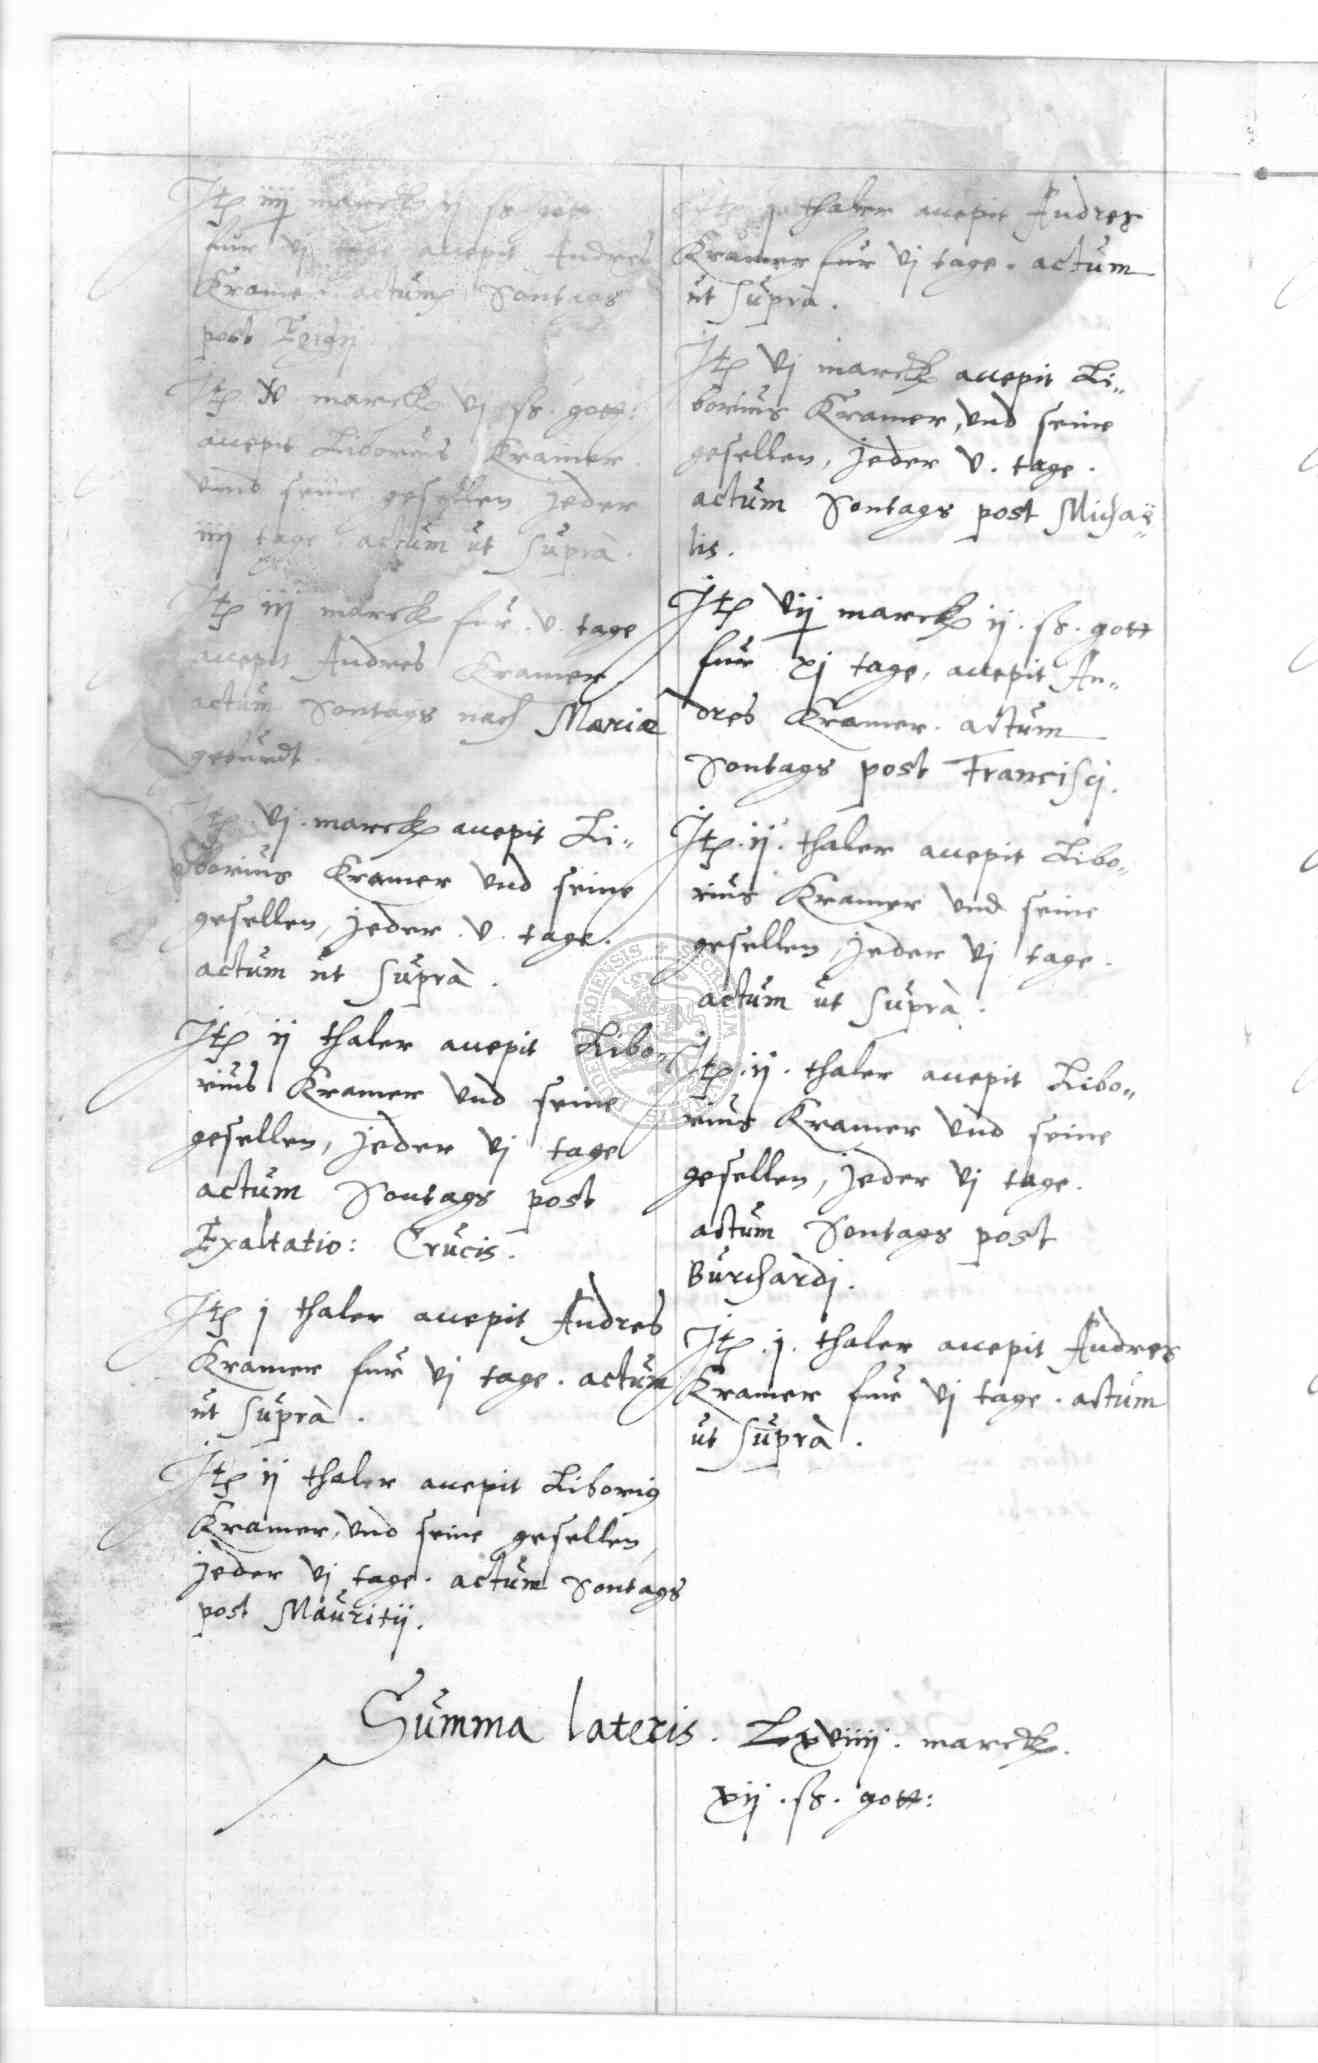 Itp iiij marck ij ß gott
fur vj tage accepit Andres
Kramer actum Sontags
post Egidij
Itp V marck vj ß. gott:
accepit Liborius Kramer
vnnd seine gesellen jeder
iiij tage actum ut supra.
Itp iij marck fur .v. tage
accepit Andres Kramer.
actum Sontags nach Mariæ
geburdt.
Itp vj. marck accepit Li„
borius Kramer vnd seine
gesellen, jeder .v. tage.
actum ut supra.
Itp ij thaler accepit Libo„
rius Kramer vnd seine
gesellen, jeder vj tage
actum Sontags post
Exaltatio: Crucis.
Itp j thaler accepit Andres
Kramer fur vj tage. actum
ut supra.
Itp ij thaler accepit Liborig
Kramer, vnd seine gesellen,
jeder vj tage. actum Sontags
post Mauritij.
Itp j thaler accepit Andres
Kramer fur vj tage. actum
ut supra.
Itp vj marck accepit Li„
borius Kramer, vnd seine
gesellen, jeder v. tage.
actum Sontags post Michaë„
lis.
Itp vij marck ij. ß. gott
fur xj tage, accepit An„
dres Kramer. actum
Sontags post Francisci.
Itp. ij. thaler accepit Libo„
rius Kramer vnd seine
gesellen, jeder vj tage.
actum ut supra.
Itp. ij. thaler accepit Libo„
rius Kramer vnd seine
gesellen, jeder vj tage.
actum Sontags post
Burchardj.
Itp. j. thaler accepit Andres
Kramer fur vj tage. actum
ut supra.
Summa lateris. Lxviiij. marck.
xij. ß. gott: